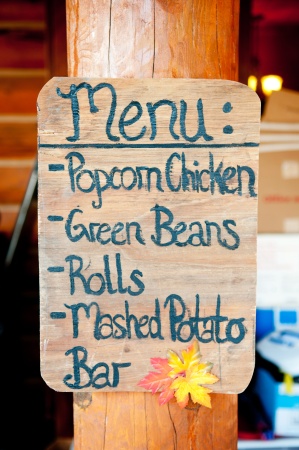 Menu:
-Popcorn Chicken
-Green Beans
-Rolls
-Mashed Potato
Bar